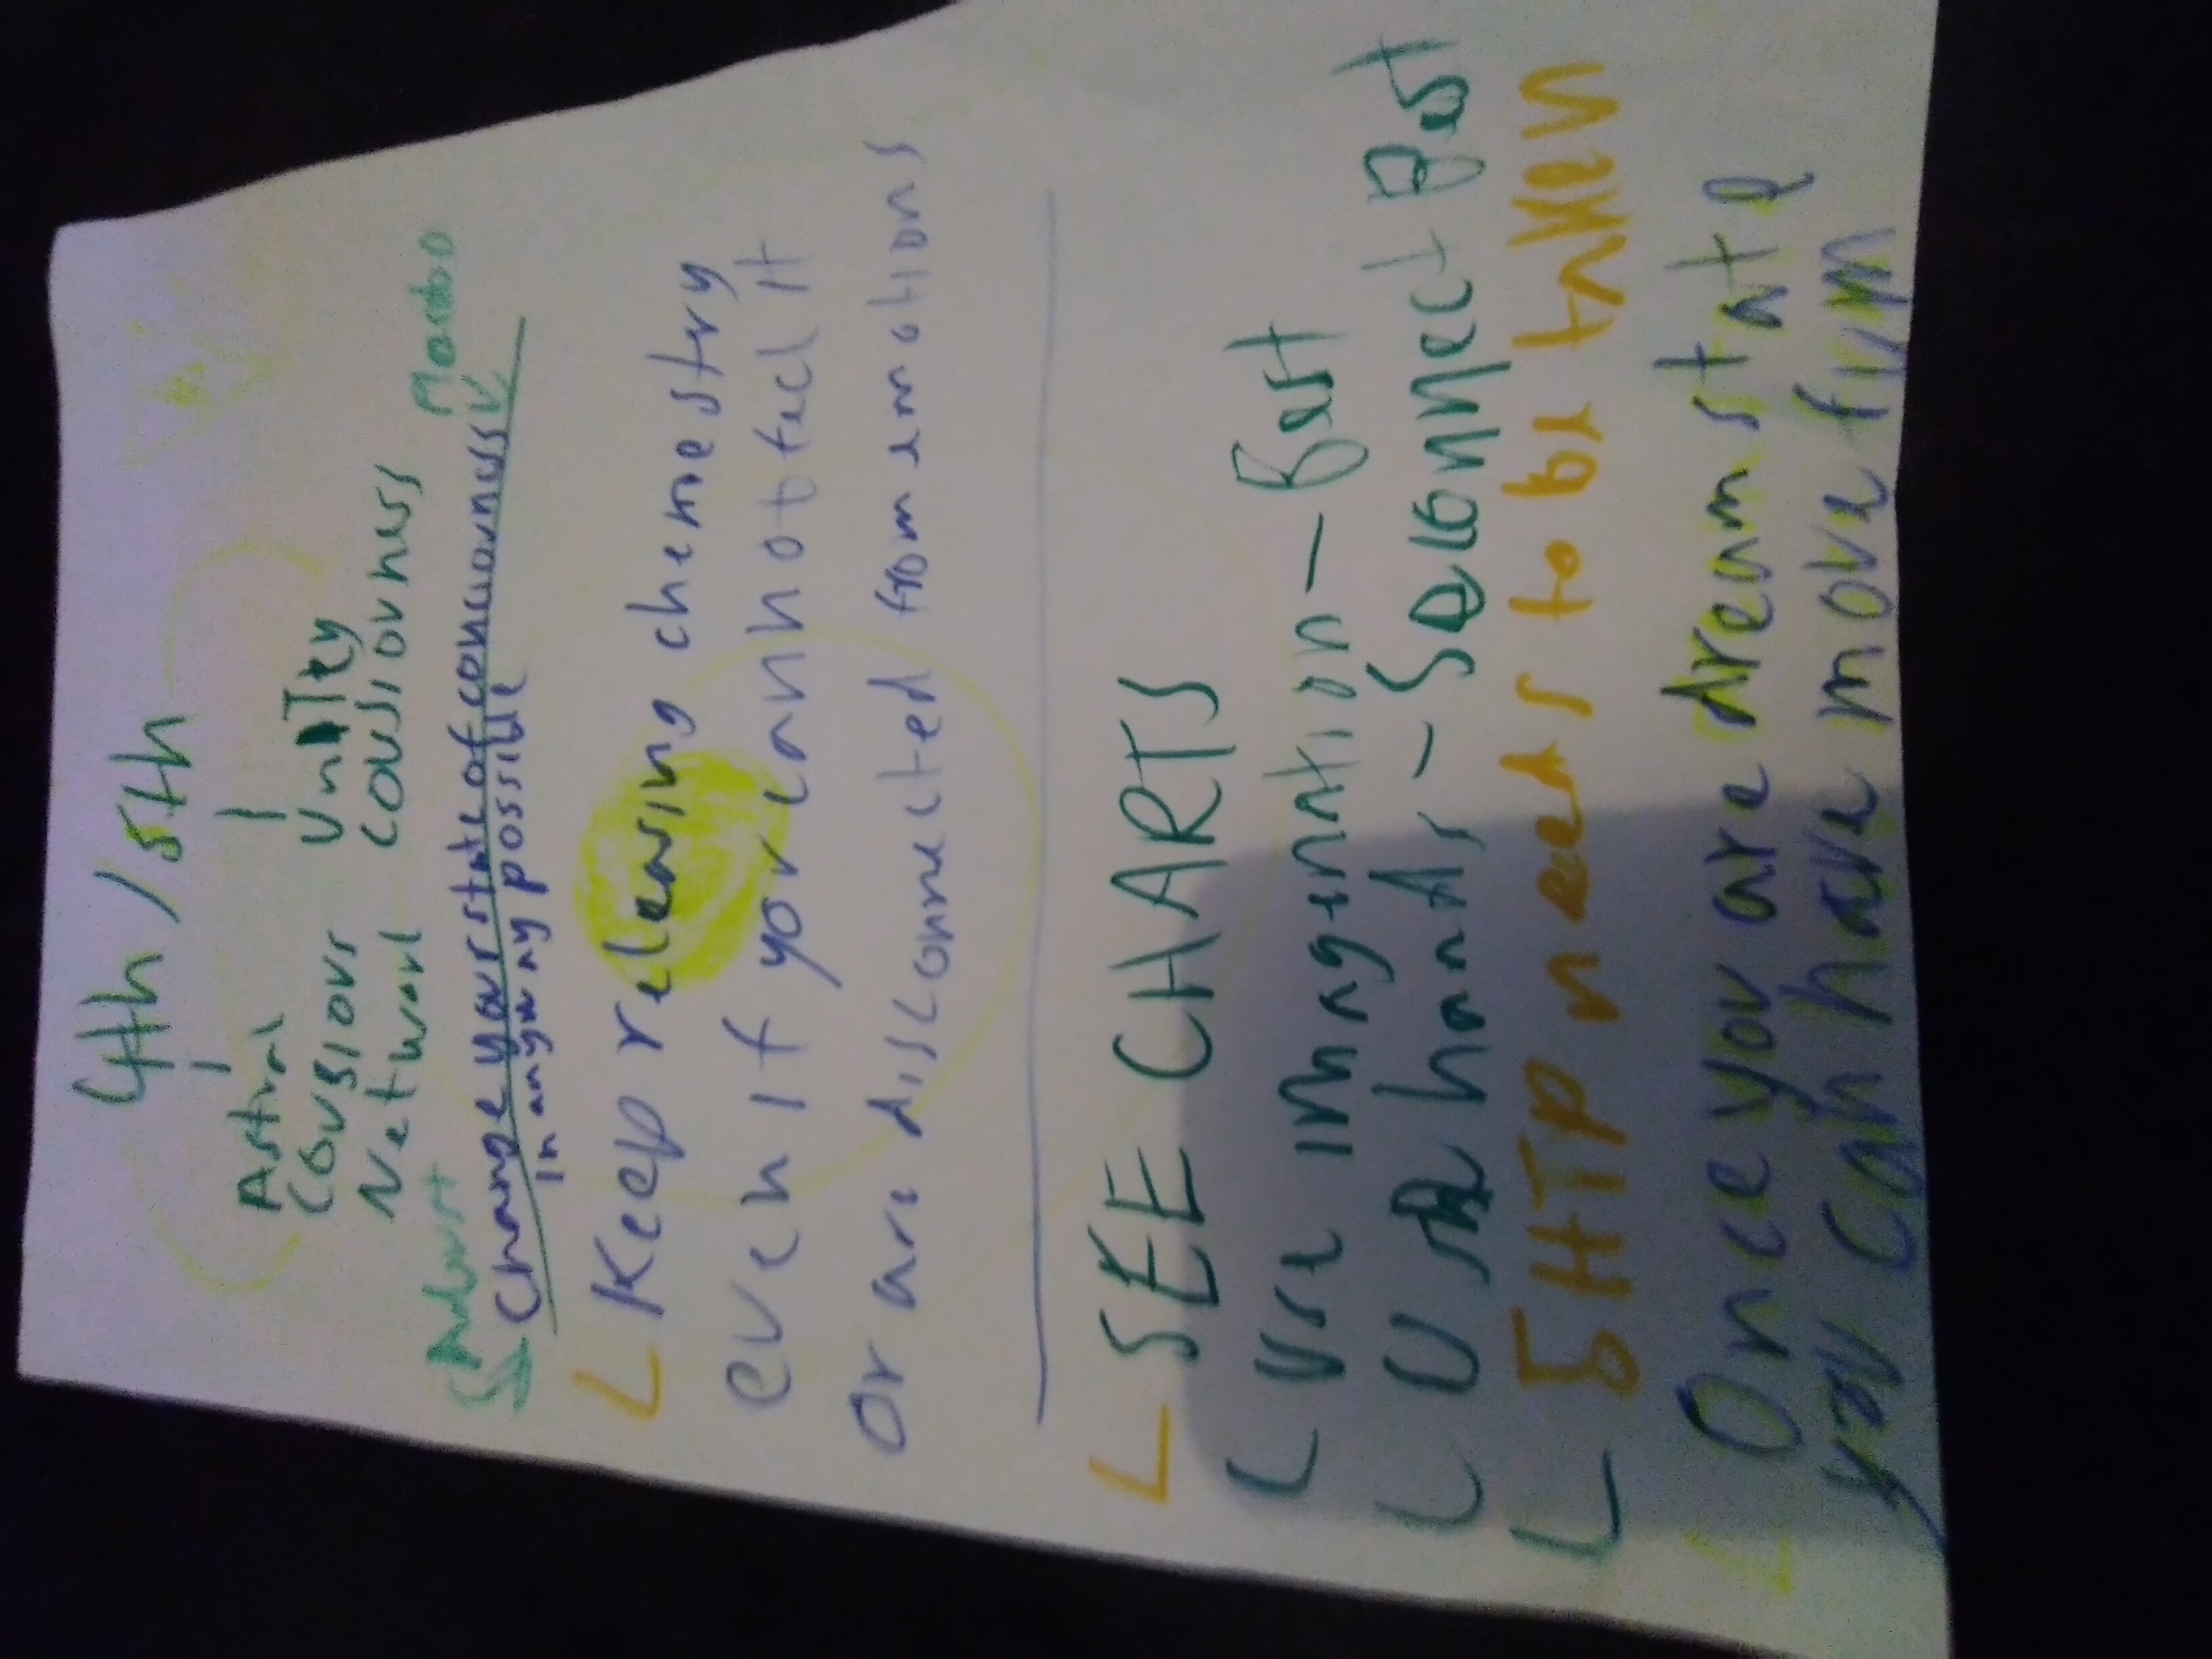 4th / 5th
Astral Unity
Cousiours Cousiovness
Network
Change your state of concuovness
In anyway possible
Keep releasing chemestry
even if you cannot feel it
or are disconnected from emotions
SEE CHARTS
Use imagination - Best
Use hands - Best
5HTP needs to be taken
Once you are dream state
you can have more fun